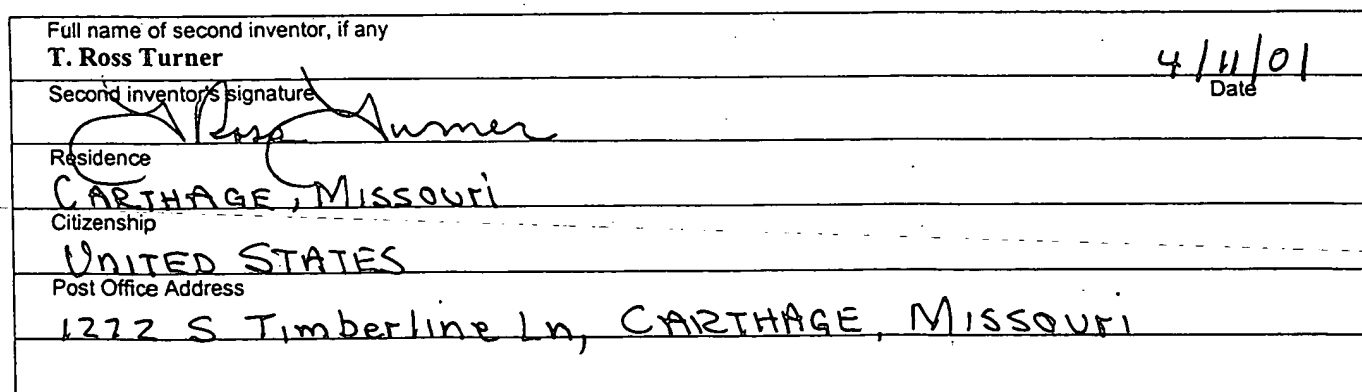 Full name of second inventor, if any
T. Ross Turner
4/11/01
Second inventor's signature
Date
T Ross Turner
Residence
CARTHAGE, Missouri
Citizenship
UNITED STATES
Post Office Address
1272 S Timberline Ln, CARTHAGE, Missouri